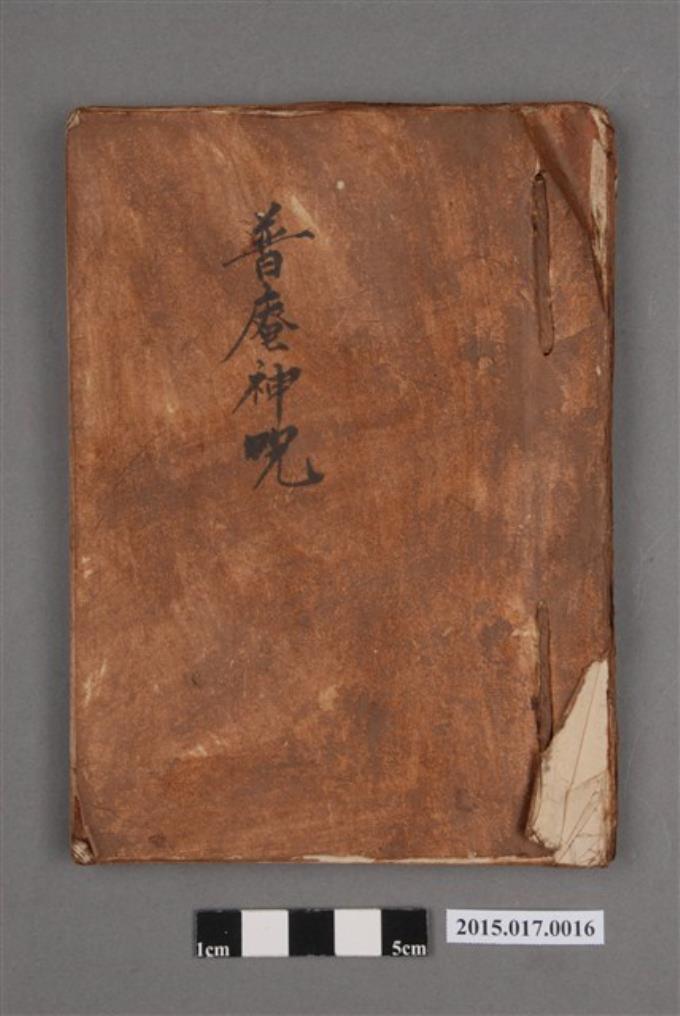 普庵神咒
1cm 5cm
2015.017.0016